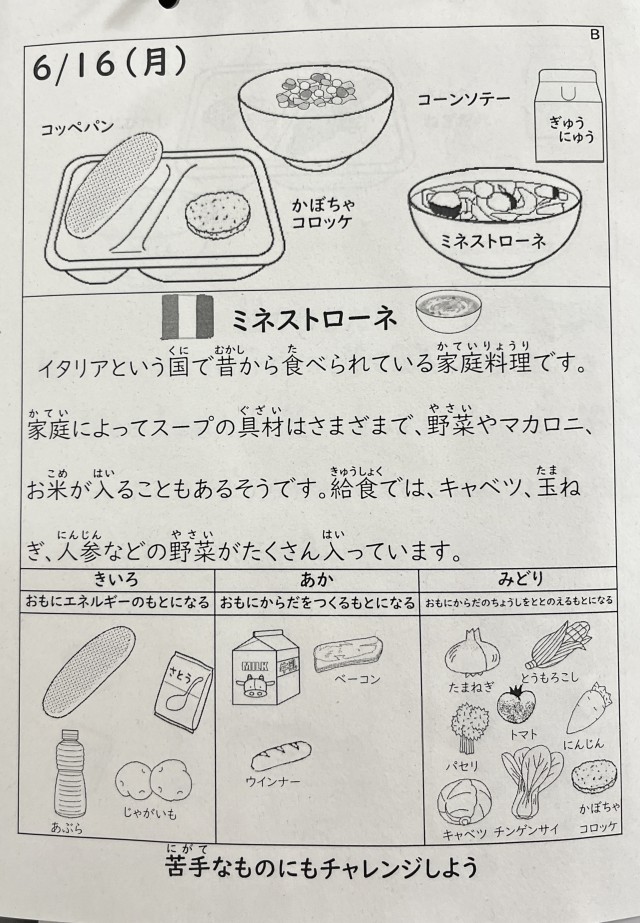 B
6/16(月)
コーンソテー
ぎゅう
にゅう
コッペパン
かぼちゃ
コロッケ
ミネストローネ
ミネストローネ
くに むかし た かていりょうり
イタリアという国で昔から食べられている家庭料理です。
かてい ぐざい やさい
家庭によってスープの具材はさまざまで、野菜やマカロニ、
こめ はい きゅうしょく たま
お米が入ることもあるそうです。給食では、キャベツ、玉ね
にんじん やさい はい
ぎ、人参などの野菜がたくさん入っています。
きいろ あか みどり
おもにエネルギーのもとになる おもにからだをつくるもとになる おもにからだのちょうしをととのえるもとになる
さとう
あぶら
じゃがいも
MILK
ベーコン
ウインナー
たまねぎ
とうもろこし
トマト
にんじん
パセリ
キャベツ
チンゲンサイ
かぼちゃ
コロッケ
にがて
苦手なものにもチャレンジしよう